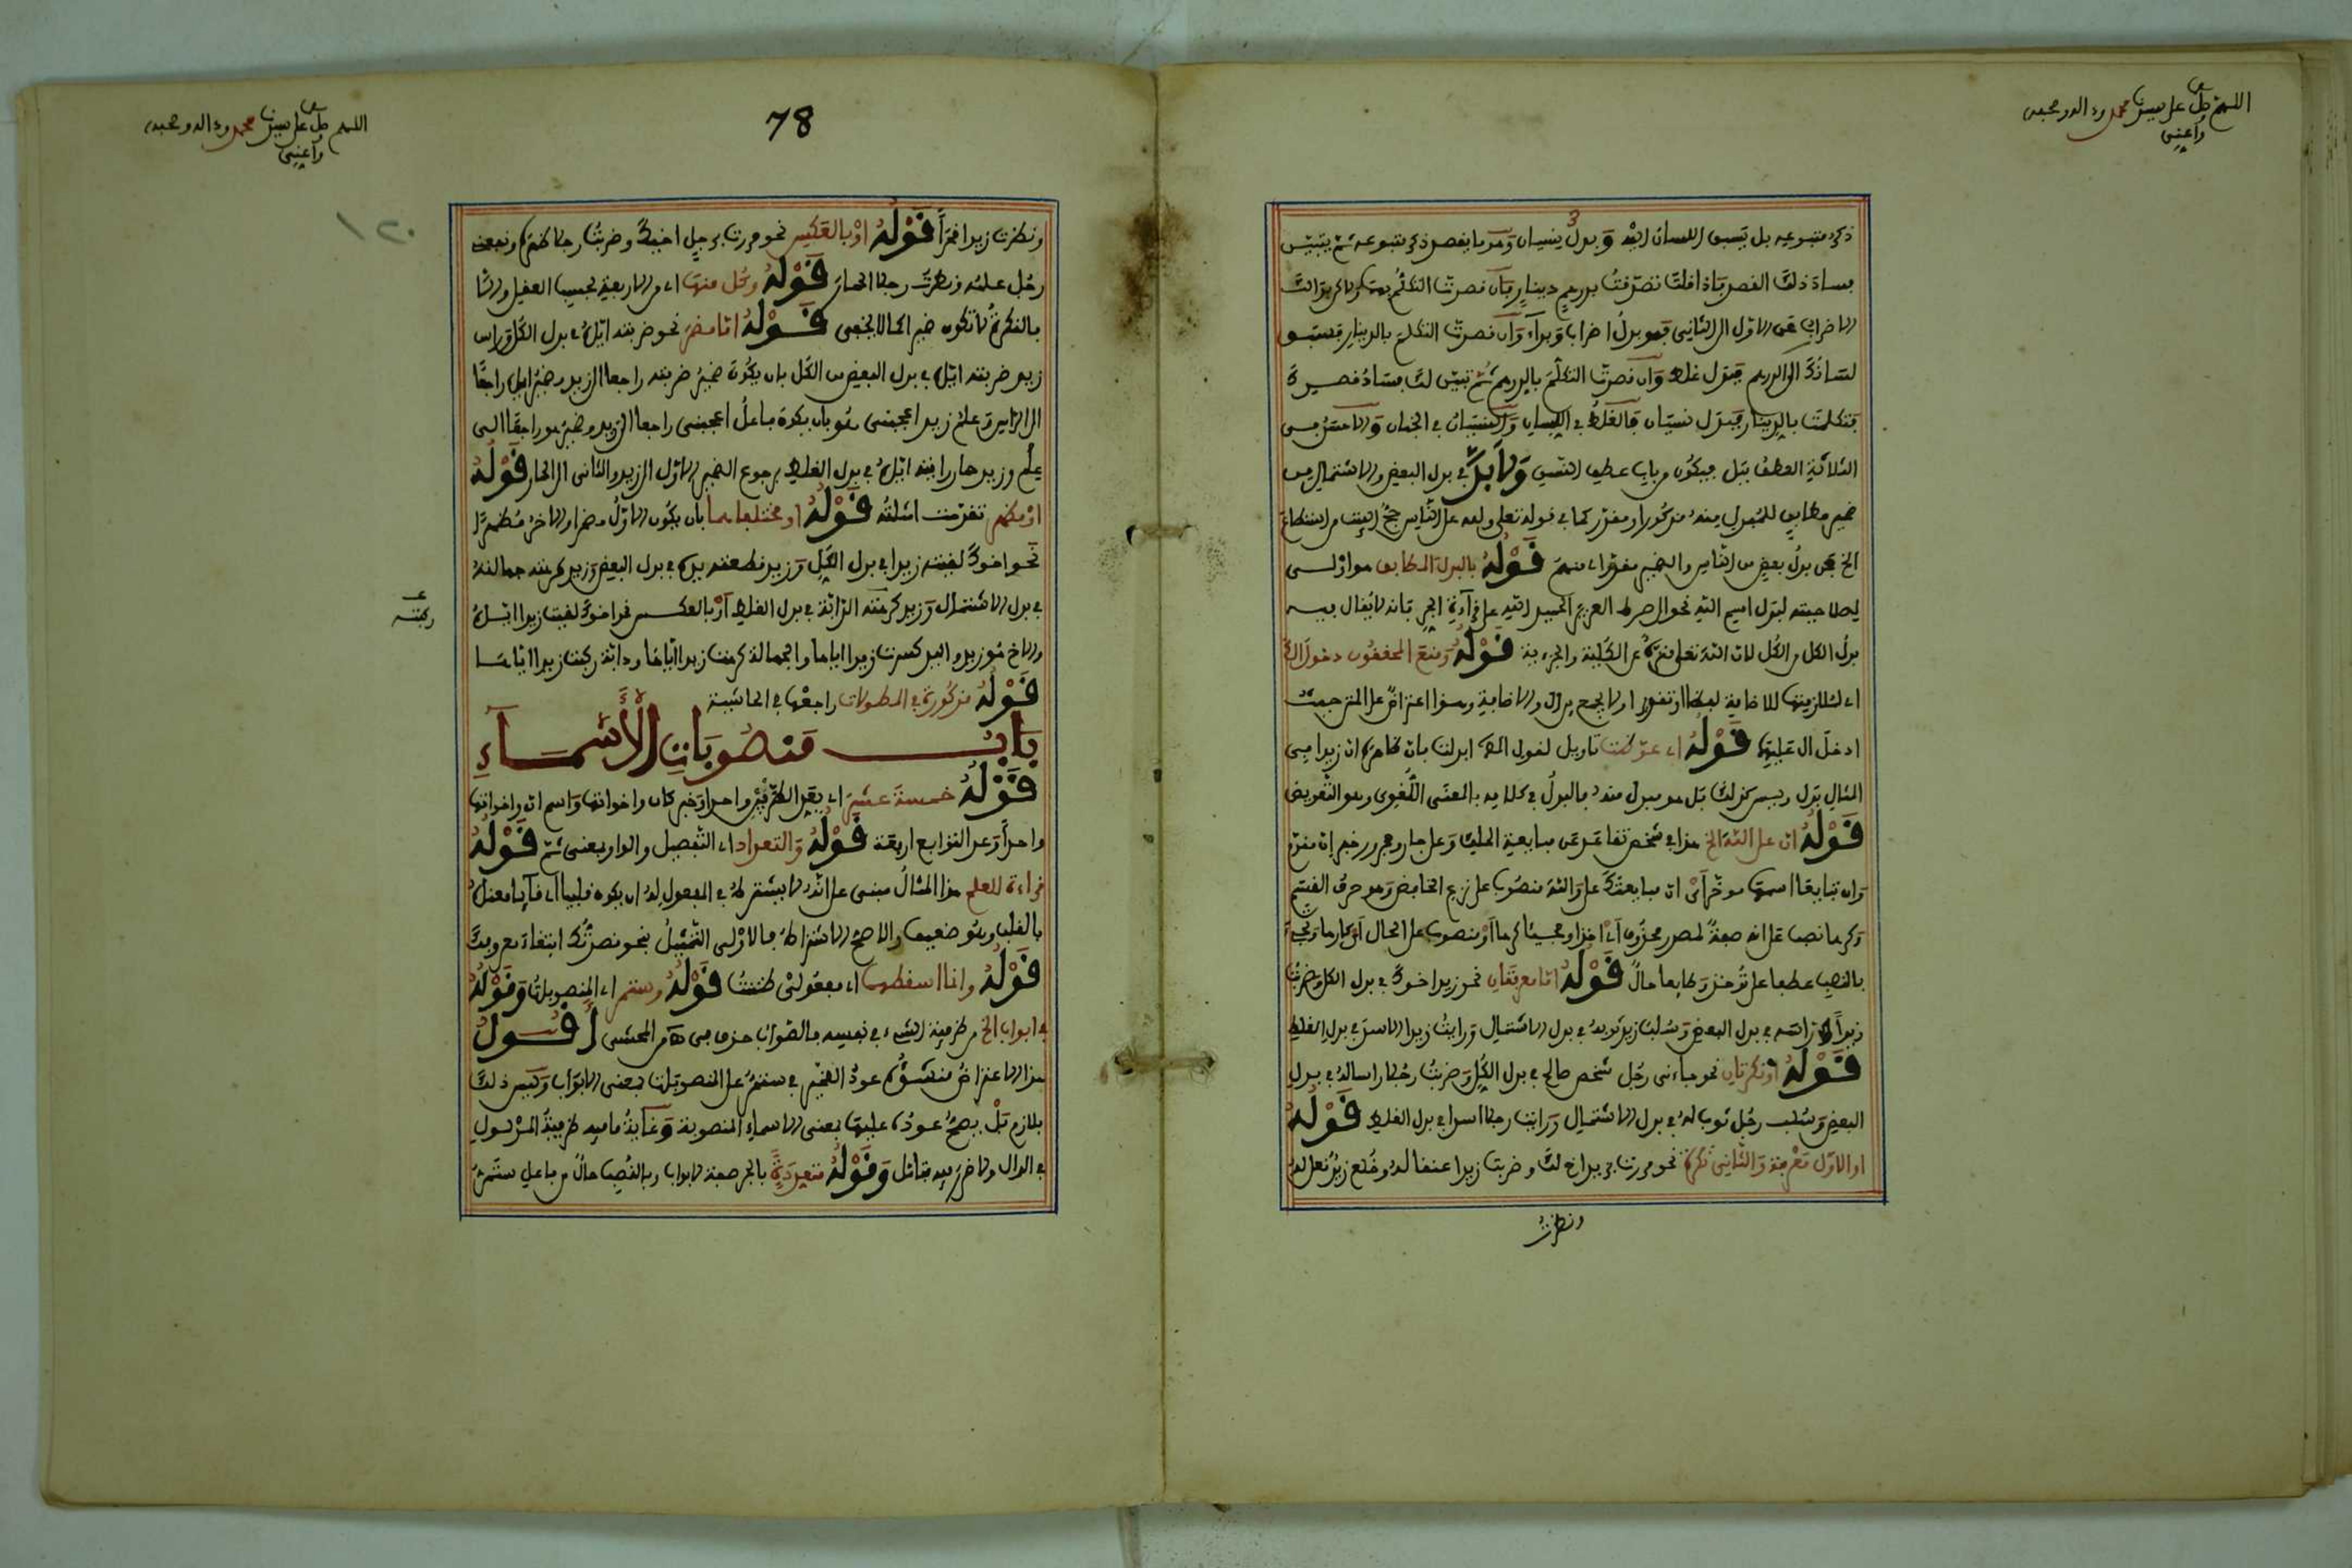 اللهم صل على سيدنا محمد وءاله وصحبه
وأعني
ذكر متبوعه بل يسبق اللسان اليه وبدل نسيان وهو ما يقصد ذكر متبوعه ثم يتبين
فساد ذلك القصد فاذا قلت تصدقت بدرهم دينار فان قصدت التكلم بهما
الاضراب عن الاول الى الثانى فهو بدل اضراب وبداء وان قصدت التكلم بالدينار فسبق
لسانك الى الدرهم فبدل غلط وان قصدت التكلم بالدرهم ثم تبين لك فساد قصدك
فتكلمت بالدينار فبدل نسيان فالغلط في اللسان والنسيان في الجنان والاحسن في
الثلاثة العطف ببل فيكون من باب عطف النسق ولا بد في بدل البعض والاشتمال من
ضمير مطابق للمبدل منه مذكور او مقدر كما في قوله تعلى ولله على الناس حج البيت من استطاع
الخ فمن بدل بعض من الناس والضمير مقدر اى منهم قوله بالبدل المطابق هو اولى
لصلاحيته لبدل اسم الله نحو الى صراط العزيز الحميد الله على قراءة الجر فانه لا يقال فيه
بدل الكل من الكل لان الله تعلى منزه عن الكلية والجزءية قوله ومنع المحققون دخول ال
اى لملازمتها للاضافة لفظا او تقديرا ولا يجمع بين ال والاضافة وهذا اعتراض على المترجم حيث
ادخل ال عليها قوله اى عوضت تاويل لقول المص ابدلت بان ظاهره ان زيدا في
المثال بدل وليس كذلك بل هو مبدل منه فالبدل في كلامه بالمعنى اللغوى وهو التعويض
قوله ان على الله الخ هذا في شخص تقاعد عن مبايعة الملك وعلى جار ومجرور خبر ان مقدم
وان تبايعا اسمها موخر اى ان مبايعتك على والله منصوب على نزع الخافض وهو حرف القسم
وكرها نصب على انه صفة لمصدر محذوف اى اخذا ومجيئا كرها او منصوب على الحال اى كارها وتجيء
بالنصب عطفا على توخذ وطايعا حال قوله اما معرفتان نحو زيد اخوك في بدل الكل وضربت
زيدا راسه في بدل البعض وسلب زيد ثوبه في بدل الاشتمال ورايت زيدا الاسد في بدل الغلط
قوله او نكرتان نحو جاءنى رجل شخص صالح في بدل الكل وضربت رجلا راسا له في بدل
البعض وسلب رجل ثوب له في بدل الاشتمال ورايت رجلا اسدا في بدل الغلط قوله
او الاول معرفة والثانى نكرة نحو مررت بزيد اخ لك وضربت زيدا عنقا له وخلع زيد نعل له
ونظرت
اللهم صل على سيدنا محمد وءاله وصحبه
وأعني
78
١٢٠
ونظرت زيدا قمرا قوله او بالعكس نحو مررت برجل اخيك وضربت رجلا ظهره ونفعنى
رجل علمه ونظرت رجلا الحمار قوله وكل منها اى من الاربعة بحسب العقل والا
بالنكرة لا تكون ضميرا كما لا يخفى قوله اما مضمر نحو ضربته اياه في بدل الكل وراس
زيد ضربته اياه في بدل البعض من الكل بان يكون ضمير ضربته راجعا الى زيد وضمير اياه راجعا
الى الراس وعلم زيد اعجبنى هو بان يكون فاعل اعجبنى راجعا الى زيد وضمير هو راجعا الى
علم وزيد حمار رايته اياه في بدل الغلط برجوع الضمير الاول الى زيد والثانى الى الحمار قوله
او مظهر تقدمت امثلته قوله او مختلفا هما بان يكون الاول مضمرا والاخر مظهرا
نحو اخوك لقيته زيدا في بدل الكل وزيد قطعته يده في بدل البعض وزيد كرهته جماله
في بدل الاشتمال وزيد كرهته الدابة في بدل الغلط او بالعكس نحو اخوك لقيت زيدا اياه
والاخ هو زيد واليد كسرت زيدا اياها والجمالة كرهت زيدا اياها ودابة ركبت زيدا اياها
ركبته
قوله مذكورة في المطولات راجعها في الحاشية
باب منصوبات الأسماء
قوله خمسة عشر اى بعد الظرفين واحدا وخبر كان واخواتها واسم ان واخواتها
واحدا وعد التوابع اربعة قوله والتعداد اى التفصيل والواو بمعنى ثم قوله
قراءة للعلم هذا المثال مبنى على انه لا يشترط في المفعول له ان يكون قلبيا اى قايما معناه
بالقلب وهو ضعيف والاصح الاشتراط فالاولى التمثيل بنحو نصرتك ابتغاء معروفك
قوله وانا اسقطهما اى مفعولى ظننت قوله وستمر اى المنصوبات وقوله
في ابواب الخ من ظرفية الشىء في نفسه فالصواب حذف في المحشى اقول
هذا الاعتراض منشؤه عود الضمير في ستمر على المنصوبات بمعنى الابواب وليس ذلك
بلازم بل يصح عوده عليها بمعنى الاسماء المنصوبة وغاية ما فيه ظرفية المدلول
في الدال ولا ضرر فيه فتامل وقوله متعددة بالجر صفة لابواب وبالنصب حال من فاعل ستمر